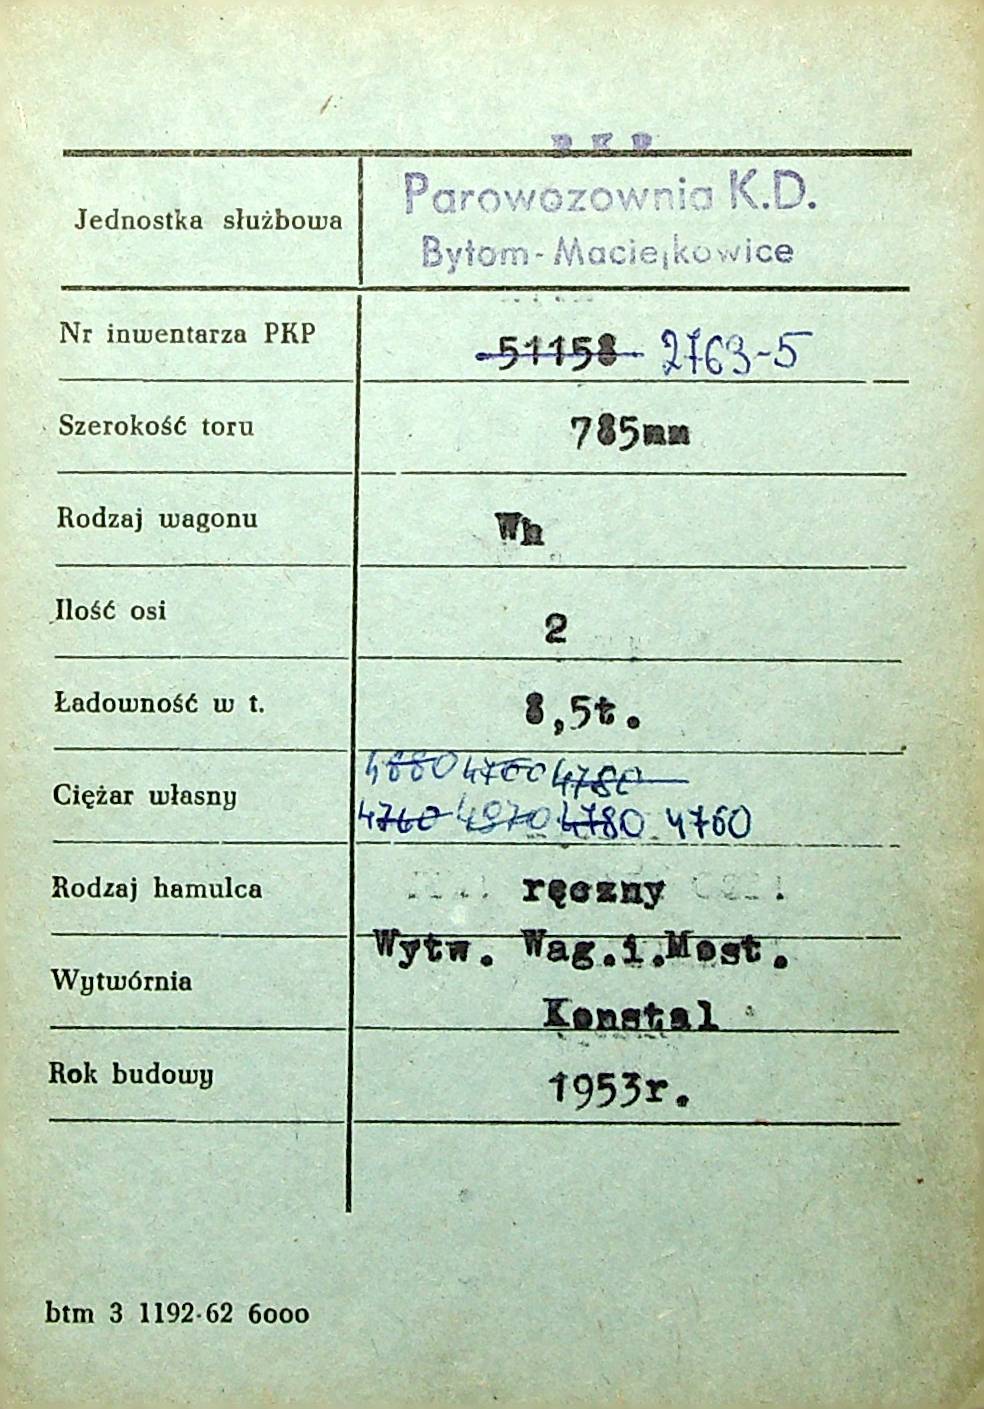 P K P
Jednostka służbowa Parowozownia K.D.
Bytom-Maciejkowice
Nr inwentarza PKP 51158 2763-5
Szerokość toru 785mm
Rodzaj wagonu Wh
Ilość osi 2
Ładowność w t. 8,5t.
4880 4760 4780
Ciężar własny 4760 4970 4780 4760
Rodzaj hamulca ręczny
Wytw. Wag.i.Most.
Wytwórnia Konstal
Rok budowy 1953r.
btm 3 1192-62 6000